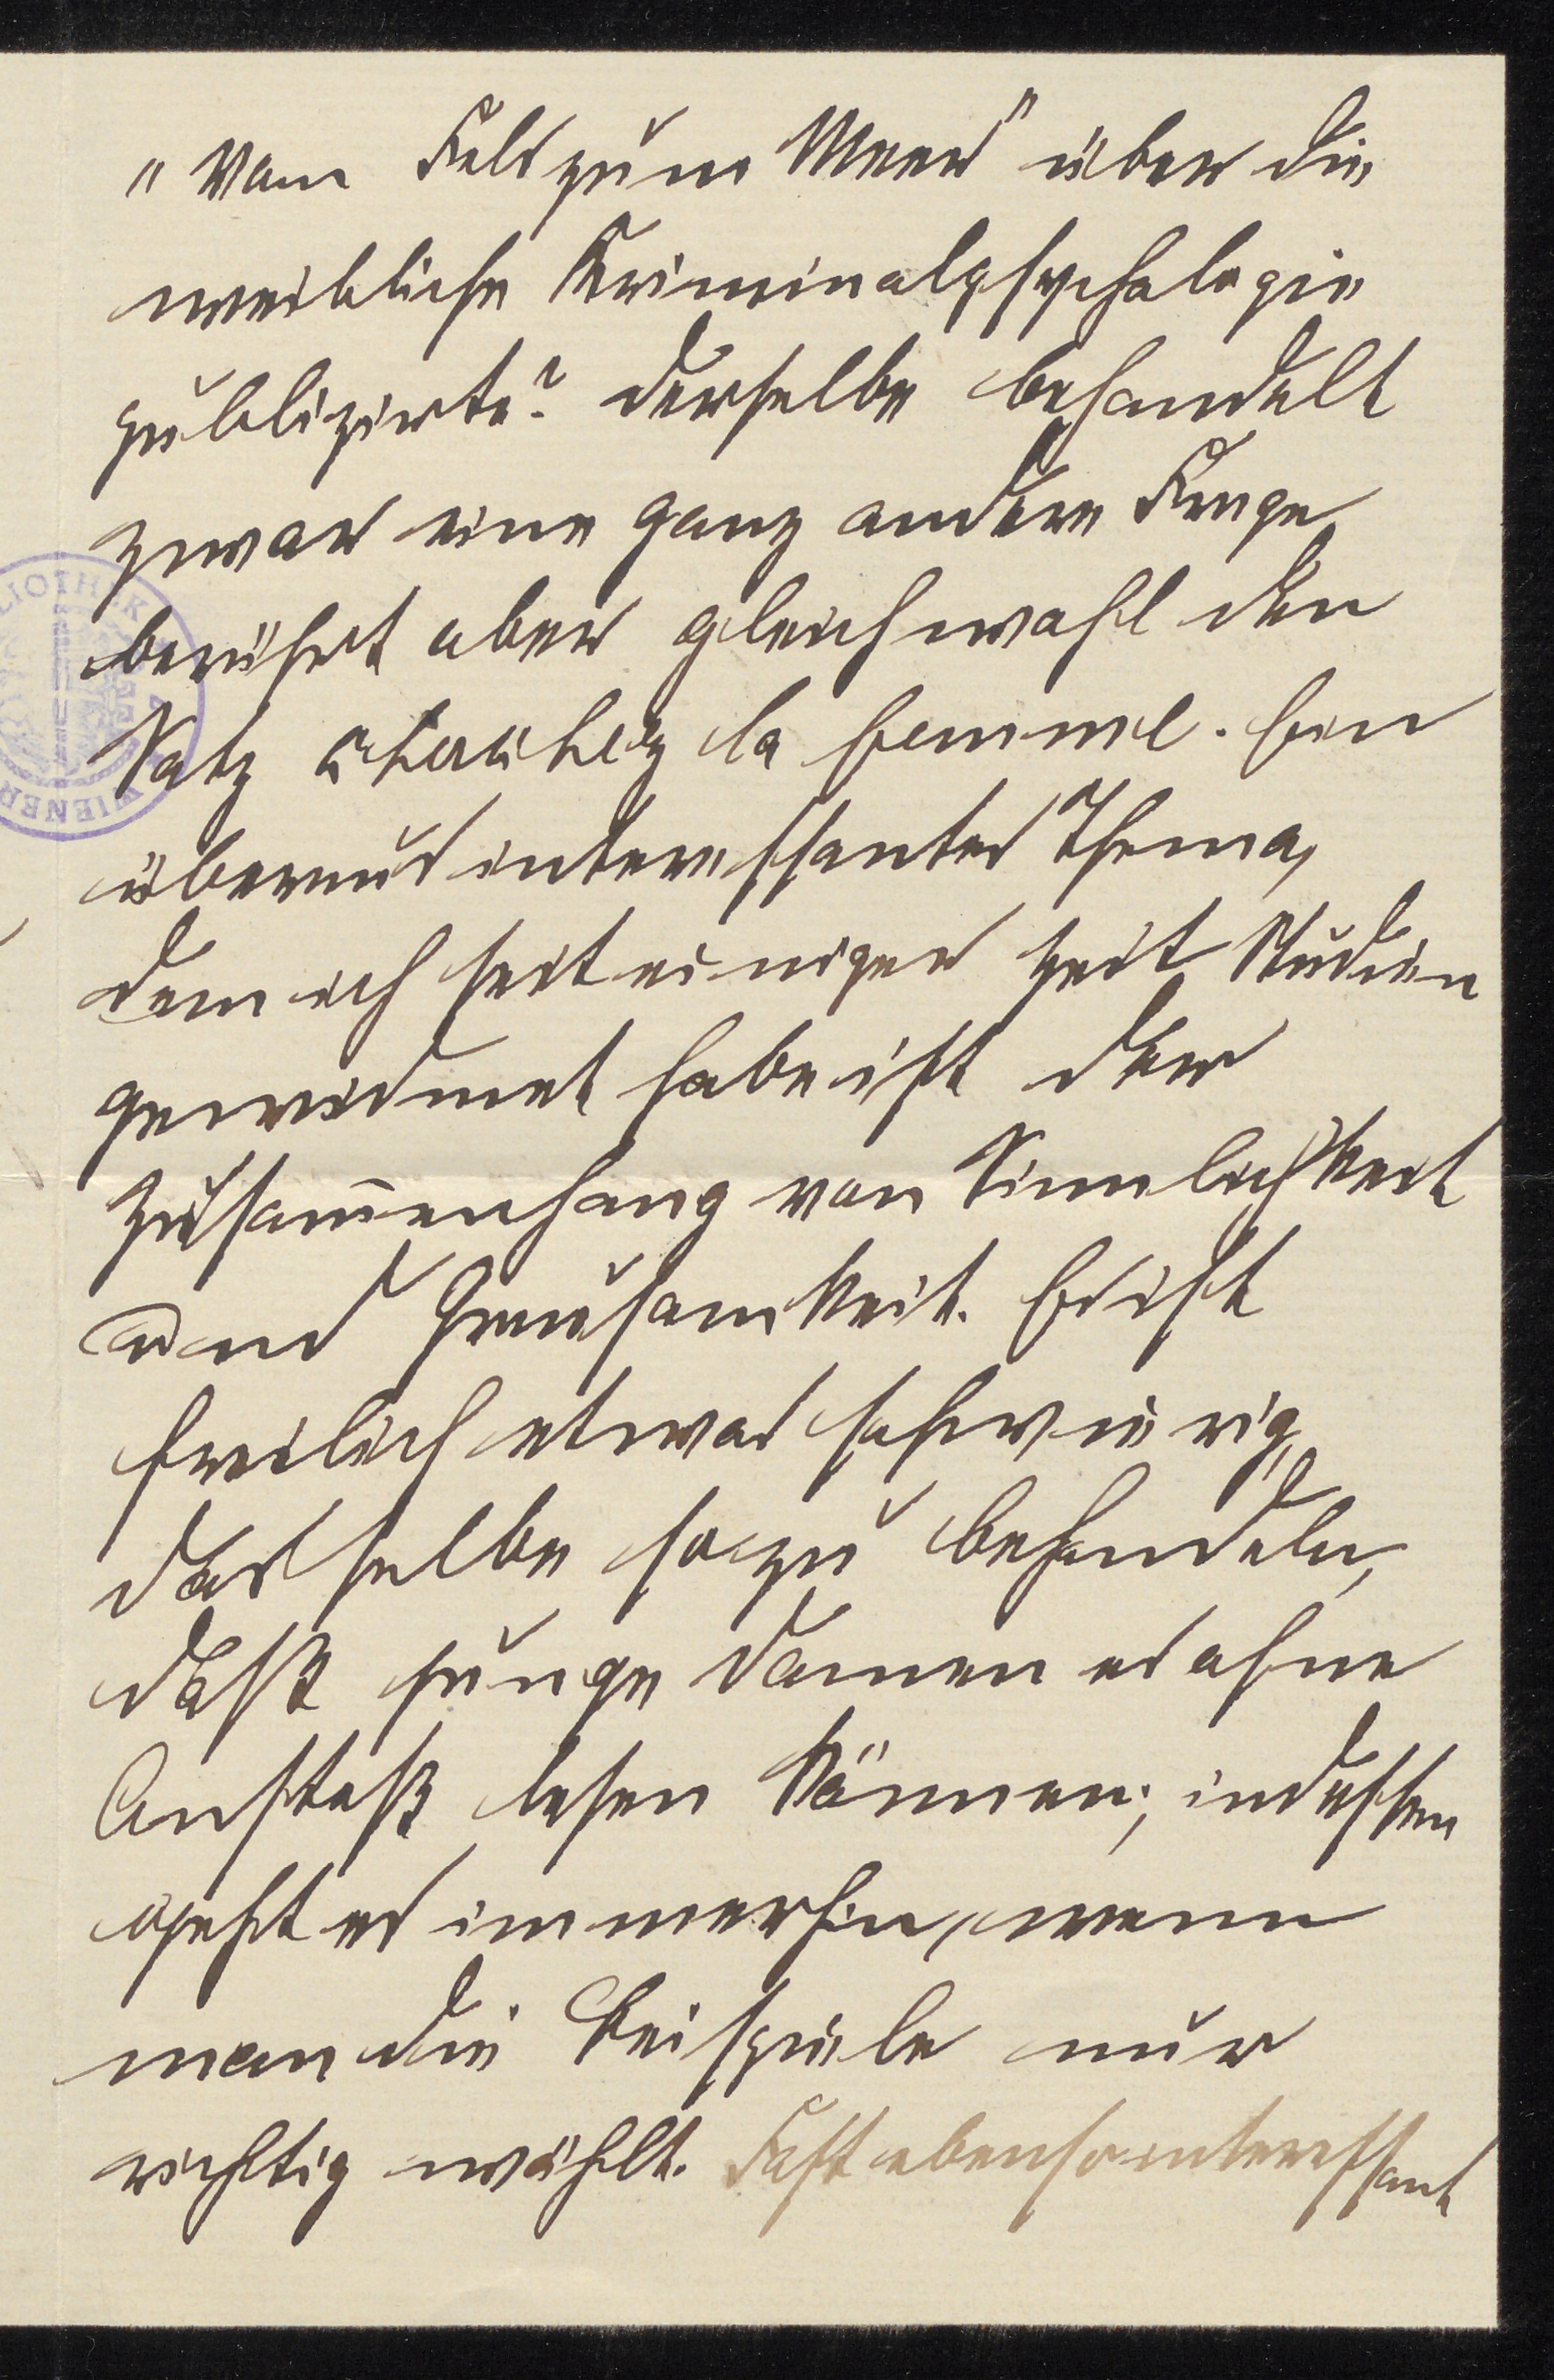 "Vom Fels zum Meer" über die
weibliche Kriminalpsychologie
publizirte? Derselbe behandelt
zwar eine ganz andere Frage
berührt aber gleichwohl den
Satz cherchez la femme. Ein
überaus interessantes Thema,
dem ich seit einiger Zeit Studien
gewidmet habe ist der
Zusam̅enhang von Sinnlichkeit
und Grausamkeit. Es ist
freilich etwas schwierig,
dasselbe so zu behandeln,
daß junge Damen es ohne
Anstoß lesen können; indessen
geht es immerhin, wenn
man die Beispiele nur
richtig wählt. Fast ebenso interessant
LIOTHEK
WIENER